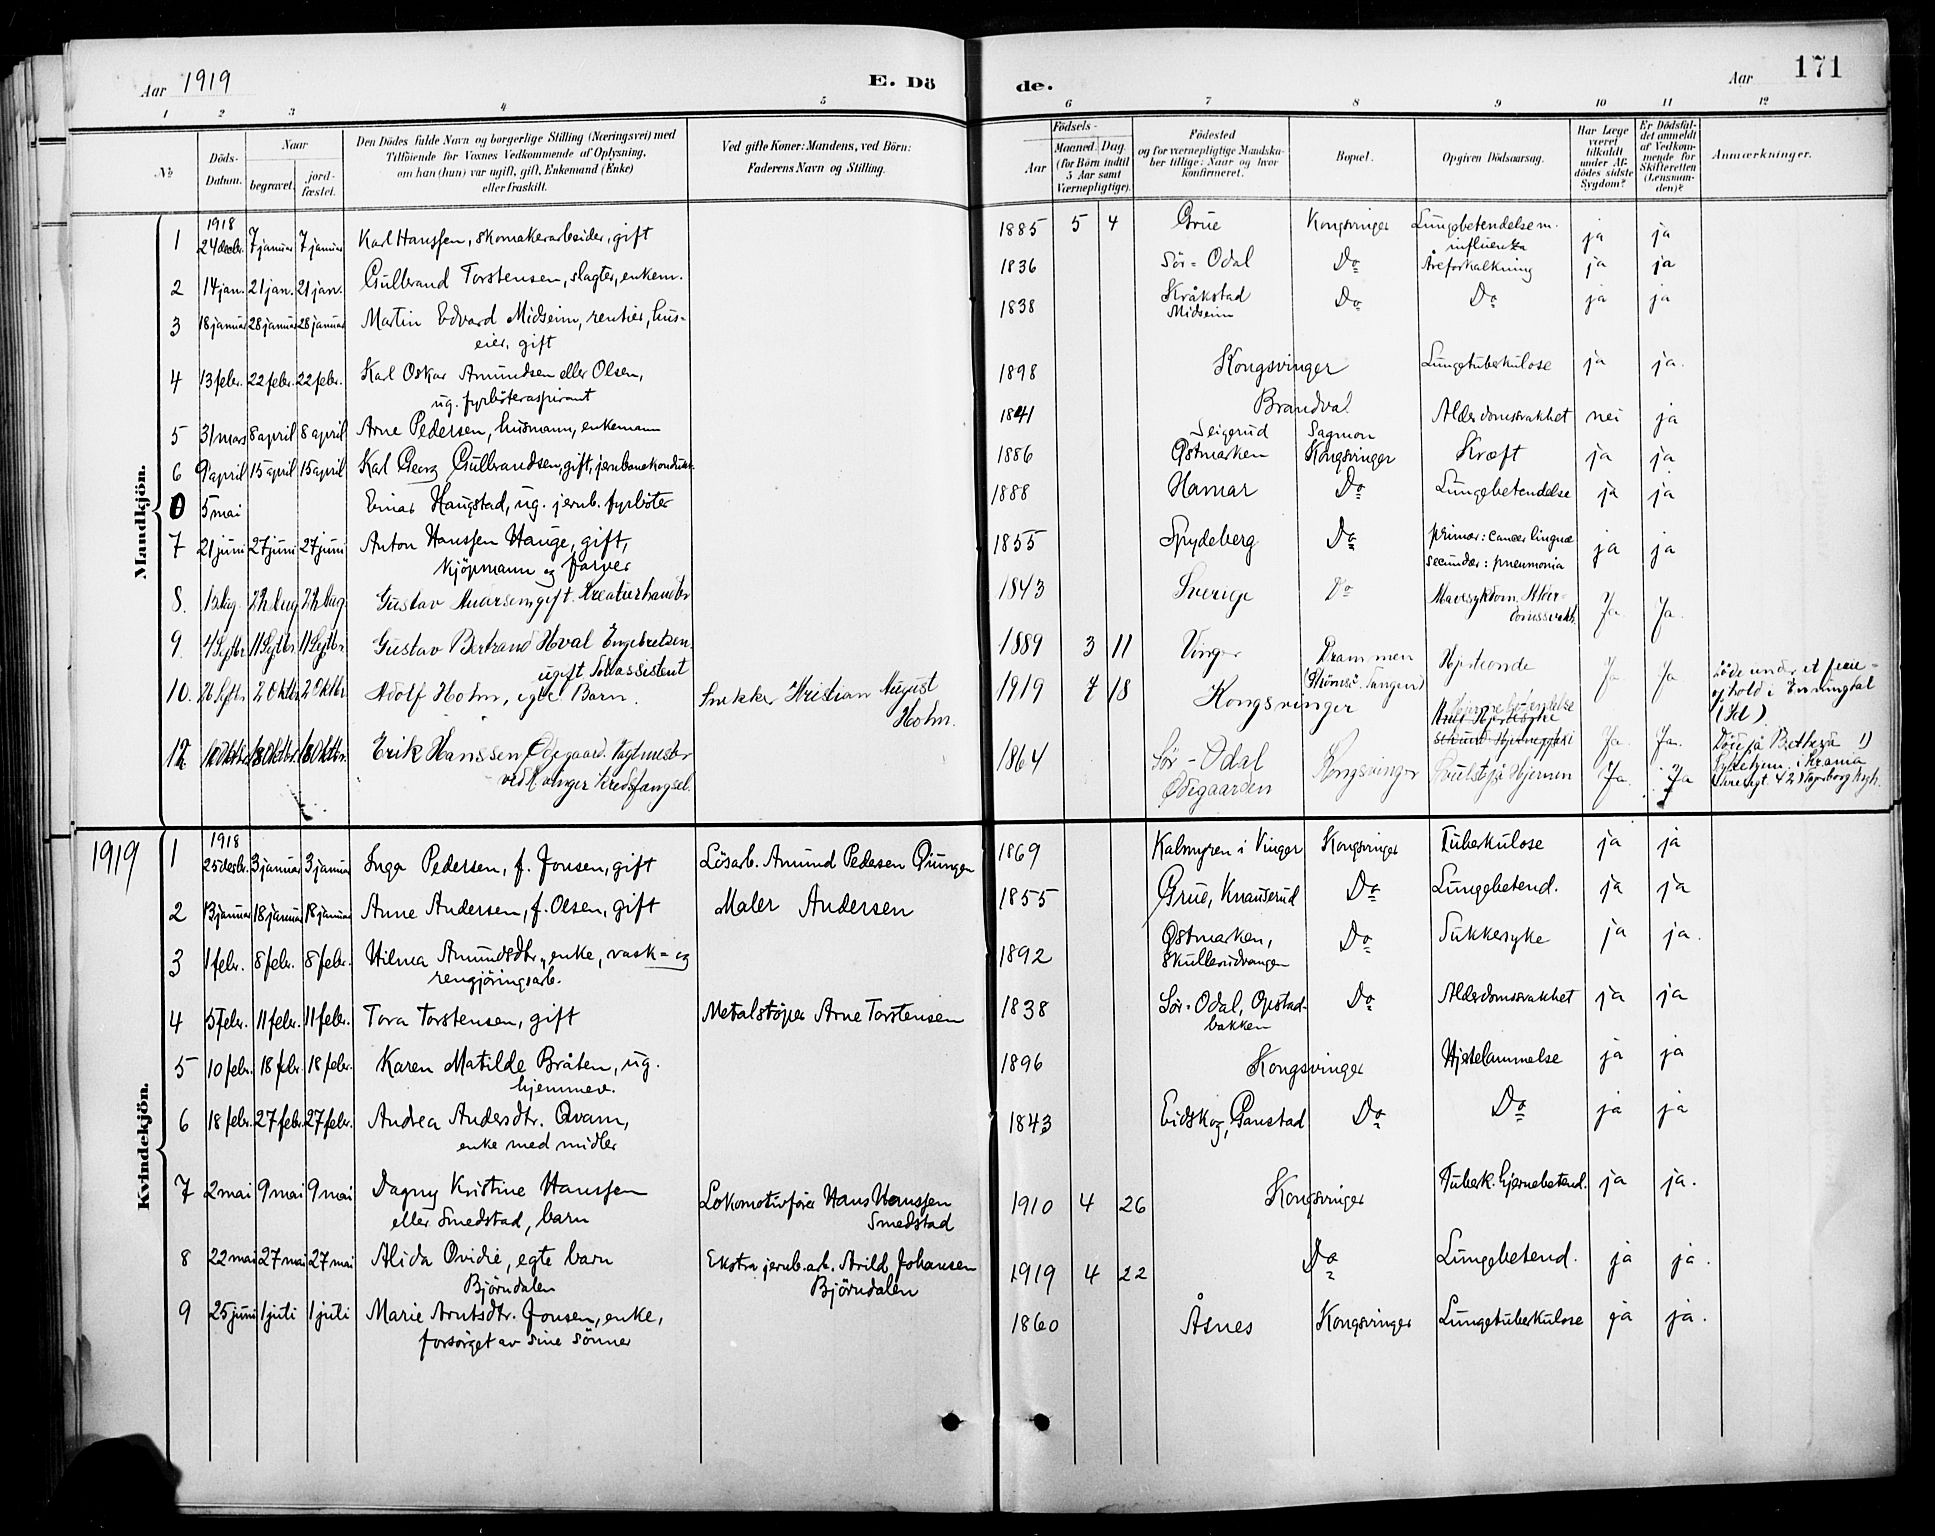 Aar 1919
E. Dö
de.
Aar
171
1 2 3 4 5 6 7 8 9 10 11 12
No
Döds-
Datum.
Naar
begravet.
jord-
fæstet.
Den Dödes fulde Navn og borgerlige Stilling (Næringsvei) med
Tilföiende for Voxnes Vedkommende af Oplysning,
om han (hun) var ugift, gift, Enkemand (Enke)
eller fraskilt.
Ved gifte Koner: Mandens, ved Börn:
Faderens Navn og Stilling.
Födsels-
Aar
Maaned. Dag.
(for Börn indtil
5 Aar samt
Værnepligtige).
Födested
og for værnepligtige Mandska-
ber tillige: Naar og hvor
konfirmeret.
Bopæl.
Opgiven Dödsaarsag.
Har Læge
været
tilkaldt
under Af-
dödes sidste
Sygdom?
Er Dödsfal-
det anmeldt
af Vedkom-
mende for
Skifteretten
(Lensman-
den)?
Anmærkninger.
Mandkjön.
1918
1 24 decbr. 7 januar 7 januar Karl Hanssen, skomakerarbeider, gift 1885 5 4 Grue Kongsvinger Lungebetendelse m. ja ja
influenza
2 14 jan. 21 jan. 21 jan. Gulbrand Torstensen, slagter, enkem. 1836 Sör-Odal Do Åreforkalkning ja ja
3 18 januar 28 januar 28 januar Martin Edvard Midseim, rentier, hus- 1838 Kråkstad Do Do ja ja
eier, gift Midseim
4 13 febr. 22 febr. 22 febr. Karl Oskar Amundsen eller Olsen, 1898 Kongsvinger Lungetuberkulose ja ja.
ug. fyrböteraspirant
5 31 mars 8 april 8 april Arne Pedersen, husmann, enkemann 1841 Brandval Alderdomssvakhet nei ja
Seigerud Sagmon
6 9 april 15 april 15 april Karl Georg Gulbrandsen, gift, jernbanekonduk. 1886 Östmarken Kongsvinger Kræft ja ja
0 5 mai Einar Haugstad, ug. jernb. fyrböter 1888 Hamar Do Lungebetendelse ja ja
7 21 juni 27 juni 27 juni Anton Hanssen Hauge, gift, 1855 Spydeberg Do primær: cancer linguæ ja ja
kjöpmann og farver secundær: pneumonia
8. Aug Gustav gift. Kreaturhandler 1843 Sverige Do Mavesykdom. Ja. Ja.
9. 4 Septbr. 11 Septbr. 11 Septbr. Gustav Bertrand Hval Engebretsen 1889 3 11 Vinger Drammen Ja Ja
ugift Tollassistent
10. 26 Septbr. 2 Oktbr. 2 Oktbr. Adolf Holm, egte Barn. Snekker Kristian August 1919 7 18 Kongsvinger Ja. Ja.
Holm.
Döde under et ferie-
ophold i Enningdal
12. Oktbr. 18 Oktbr. 18 Oktbr. Erik Hanssen Ödegaard. Vagtmester 1864 Sör-Odal Kongsvinger Ja. Ja
ved Vinger Kredsfængsel. Ödegaarden
1919
Kvindekjön.
1918
1 25 decbr. 3 januar 3 januar Inga Pedersen, f. Jonsen, gift Lösarb. Amund Pedersen Öiungen 1869 Kalmyren i Vinger Kongsvinger Tuberkulose ja ja
2 13 januar 18 januar 18 januar Anne Andersen, f. Olsen, gift Maler Andersen 1855 Grue, Knauserud Do Lungebetend. ja ja
3 1 febr. 8 febr. 8 febr. Hilma Amundsdtr., enke, vask- og 1892 Östmarken, Do Sukkersyke ja ja.
rengjöringsarb. Skullerudvangen
4 5 febr. 11 febr. 11 febr. Tora Torstensen, gift Metalstöper Arne Torstensen 1838 Sör-Odal, Opstad- Do Alderdomssvakhet ja ja
bakken
5 10 febr. 18 febr. 18 febr. Karen Matilde Bråten, ug. 1896 Kongsvinger Hjertelammelse ja ja
hjemmev.
6 18 febr. 27 febr. 27 febr. Andrea Andersdtr. Qvam, 1843 Eidskog, Ganstad Do Do ja ja
enke med midler
7 2 mai 9 mai 9 mai Dagny Kristine Hanssen Lokomotivförer Hans Hanssen 1910 4 26 Kongsvinger Tuberk. hjernebetend. ja ja.
eller Smedstad, barn Smedstad
8 22 mai 27 mai 27 mai Alida Ovidie, egte barn Ekstra jernb.arb. Arild Johansen 1919 4 22 Do Lungebetend. ja ja.
Björndalen Björndalen
9 25 juni 1 juli 1 juli Marie Arntsdtr. Jonsen, enke, 1860 Åsnes Kongsvinger Lungetuberkulose ja ja.
forsörget av sine sönner